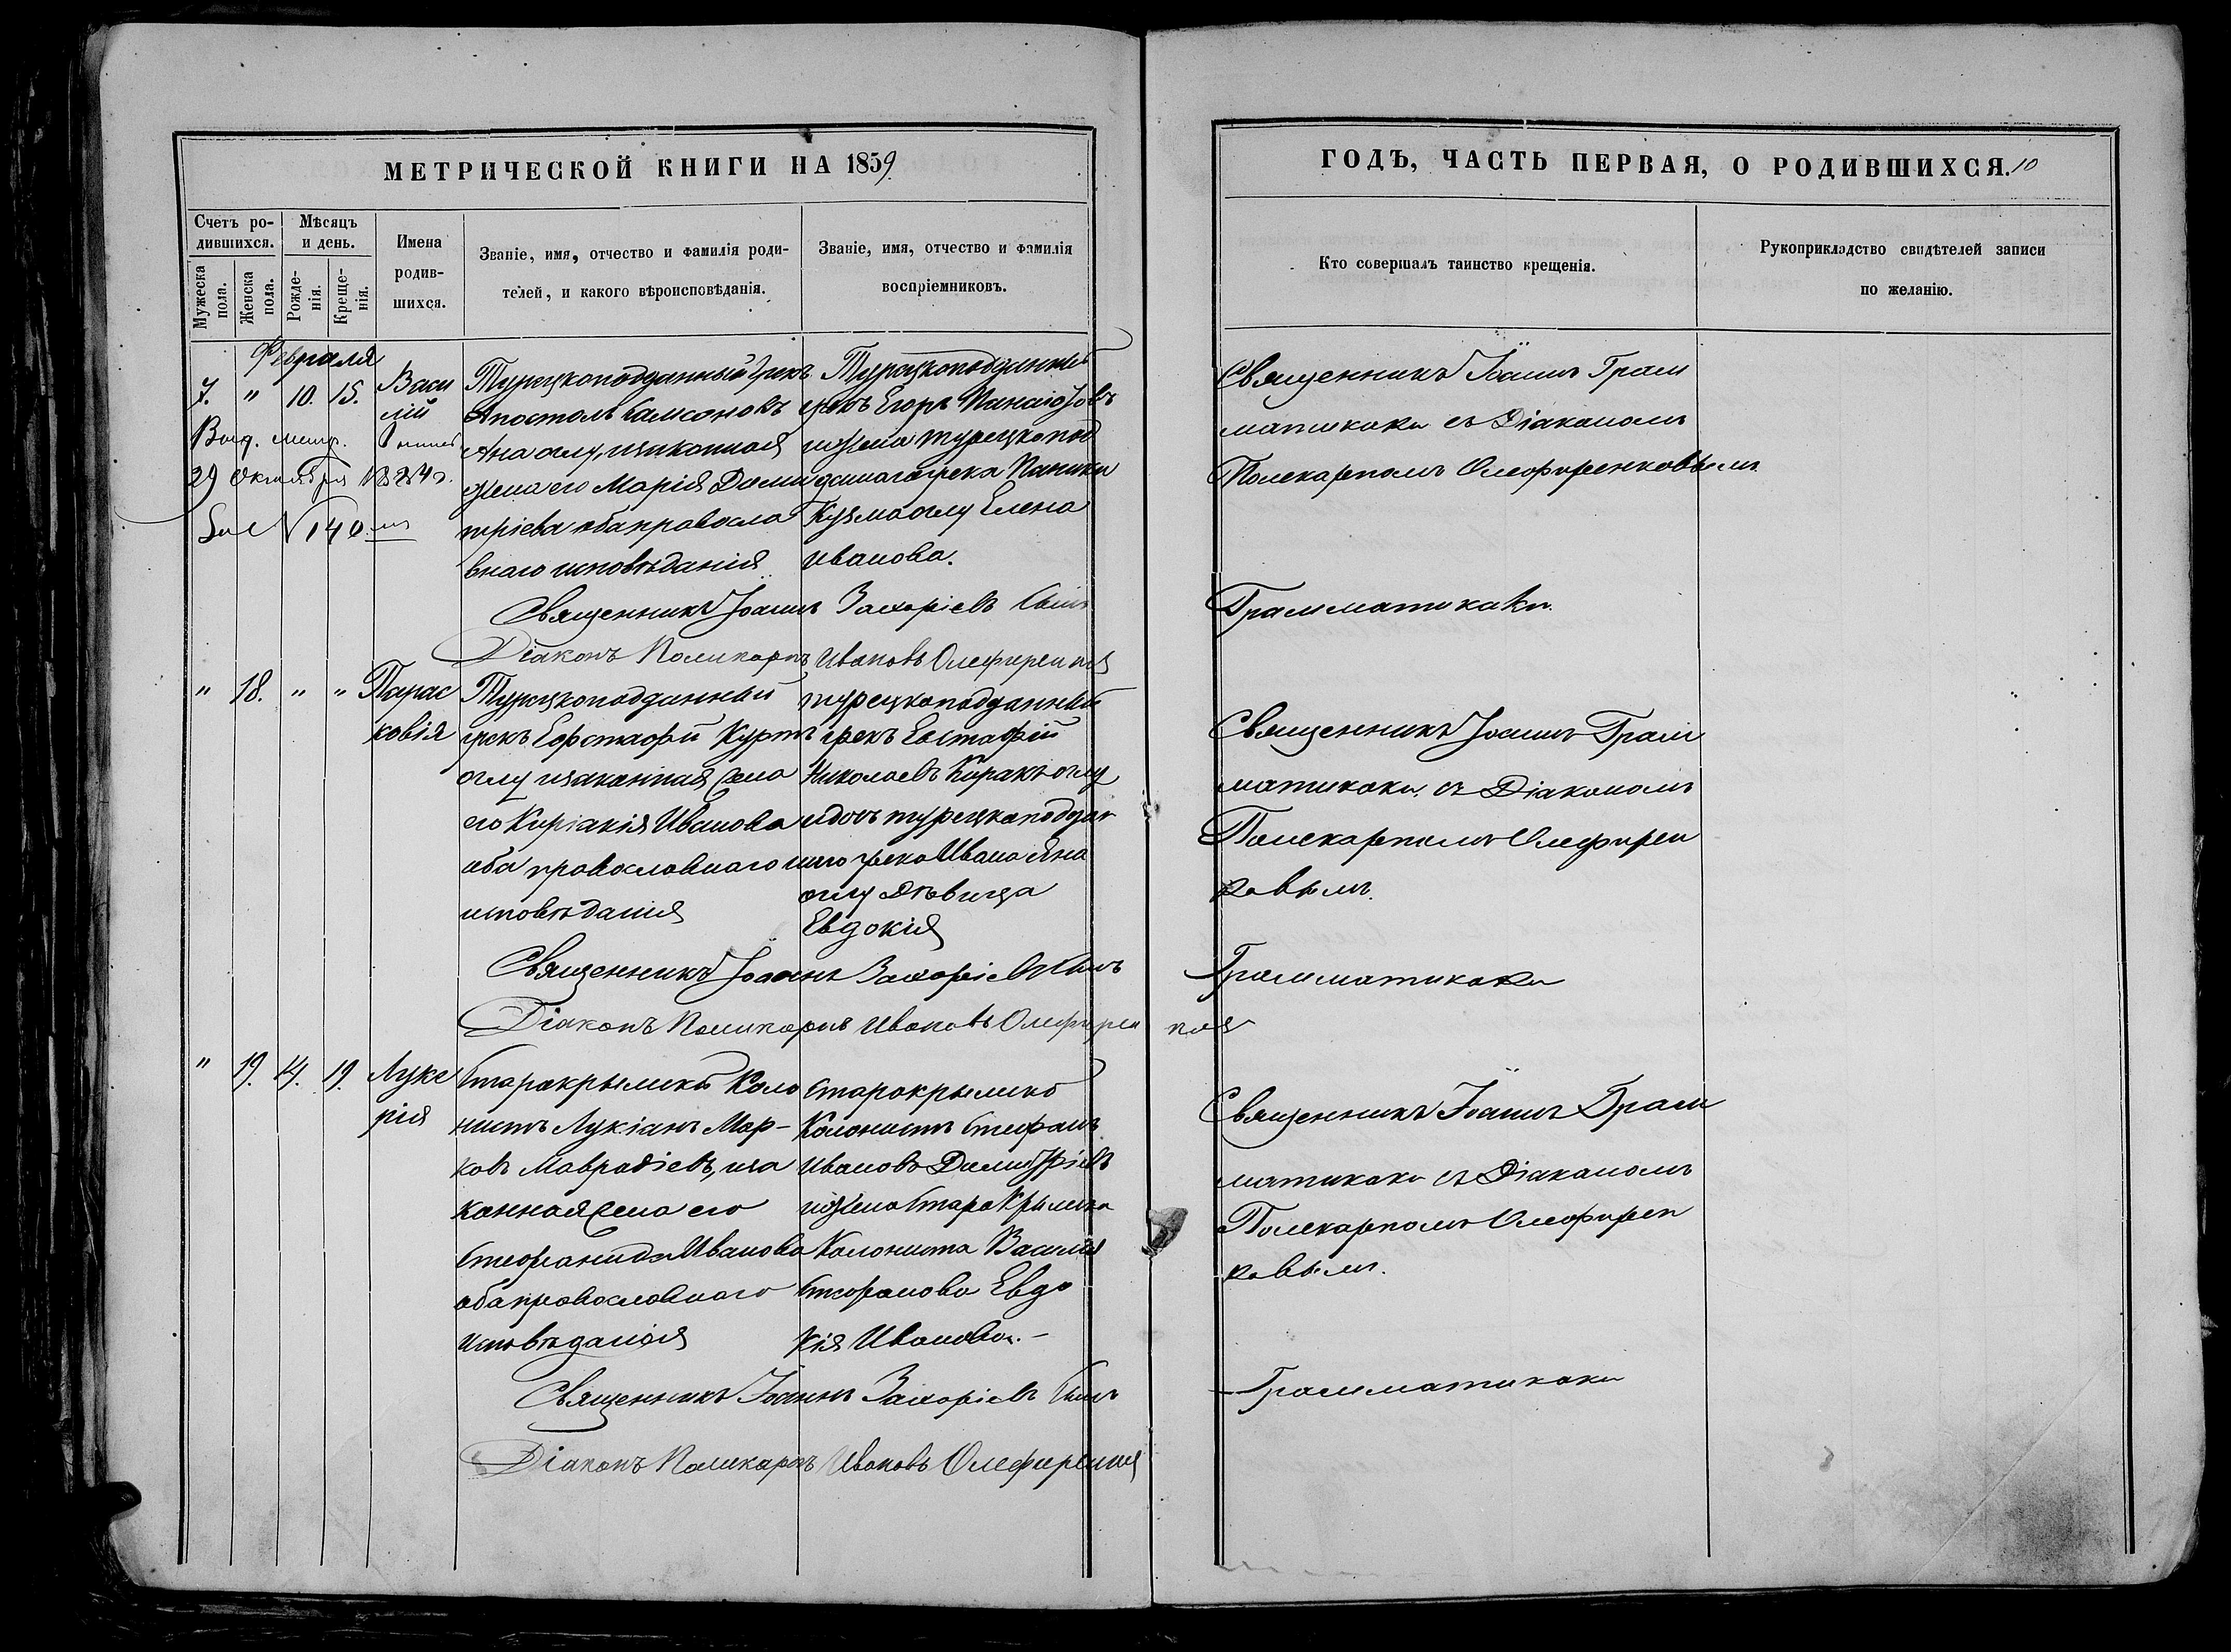 МЕТРИЧЕСКОЙ КНИГИ НА 1859
ГОДЪ, ЧАСТЬ ПЕРВАЯ, О РОДИВШИХСЯ. 10
Счетъ ро-
дившихся.
Мужеска
пола.
Женска
пола.
Мѣсяцъ
и день.
Рожде-
нія.
Креще-
нія.
Имена
родив-
шихся.
Званіе, имя, отчество и фамилія роди-
телей, и какого вѣроисповѣданія.
Званіе, имя, отчество и фамилія
воспріемниковъ.
Кто совершалъ таинство крещенія.
Рукоприкладство свидѣтелей записи
по желанію.
Февраля
7. " 10. 15.
Васи
лій
Выд. метр.
29 Октября 1884 г.
За № 140.
Турецкоподданный грекъ
Апостолъ Самсоновъ
Ана оглу, изаконная
жена его Марія Дими
тріева оба правосла
внаго исповѣданія
Турецкоподданный
грекъ Егоръ Панаіотовъ
ижена турецкопод
даннаго грека Паники
Кузмаоглу Елена
Иванова.
Священникъ Іоаннъ Грам
матикаки съ Діакономъ
Поликарпомъ Олефиренковымъ.
Священникъ Іоаннъ Захаріевъ Сынъ Грамматикаки.
Діаконъ Поликарпъ Ивановъ Олефиренко
" 18. " "
Парас
ковія
Турецкоподданный
грекъ Ефстафій Куртъ
оглу изаконная жена
его Киріакія Иванова
оба православнаго
исповѣданія
турецкоподданный
грекъ Евстафій
Николаевъ Каракъоглу
идочь турецкоподдан
наго грека Ивана Яна
оглу дѣвица
Евдокія
Священникъ Іоаннъ Грам
матикаки съ Діакономъ
Поликарпомъ Олефирен
ковымъ.
Священникъ Іоаннъ Захаріевъ Сынъ Грамматикаки
Діаконъ Поликарпъ Ивановъ Олефиренко
" 19. 14. 19.
Луке
рія
Старокрымскій Коло
нистъ Лукіанъ Мар-
ковъ Мавродіевъ, иза
конная жена его
Стефанида Иванова
оба православнаго
исповѣданія
Старокрымскій
Колонистъ Стефанъ
Ивановъ Димитріевъ
ижена Старокрымска
Колониста Василія
Стефанова Евдо
кія Иванова.-
Священникъ Іоаннъ Грам
матикаки съ Діакономъ
Поликарпомъ Олефирен
ковымъ.
Священникъ Іоаннъ Захаріевъ Сынъ Грамматикаки
Діаконъ Поликарпъ Ивановъ Олефиренко